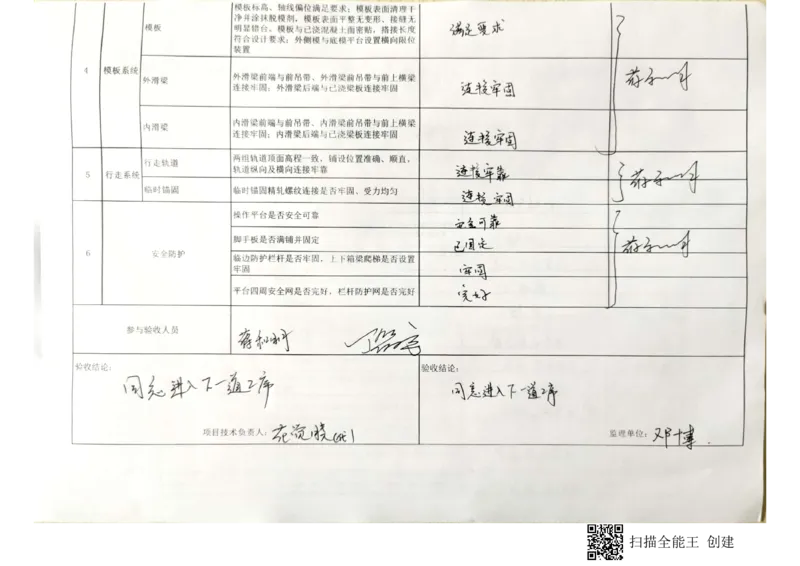 模板
模板标高、轴线偏位满足要求；模板表面清理干
净并涂抹脱模剂，模板表面平整无变形、接缝无
明显错台，模板与已浇混凝土面密贴，搭接长度
符合设计要求；外侧模与底模平台设置横向限位
装置
满足要求
4
模板系统
外滑梁
外滑梁前端与前吊带、外滑梁前吊带与前上横梁
连接牢固；外滑梁后端与已浇梁板连接牢固
连接牢固
内滑梁
内滑梁前端与前吊带、内滑梁前吊带与前上横梁
连接牢固；内滑梁后端与已浇梁板连接牢固
连接牢固
5
行走系统
行走轨道
两组轨道顶面高程一致，铺设位置准确、顺直，
轨道纵向及横向连接牢靠
连接牢靠
临时锚固
临时锚固精轧螺纹连接是否牢固、受力均匀
连接牢固
6
安全防护
操作平台是否安全可靠
安全可靠
脚手板是否满铺并固定
已固定
临边防护栏杆是否牢固，上下箱梁爬梯是否设置
牢固
牢固
平台四周安全网是否完好、栏杆防护网是否完好
完好
参与验收人员
验收结论：
同意进入下一道工序
项目技术负责人：
验收结论：
同意进入下一道工序
监理单位：邓博
扫描全能王 创建